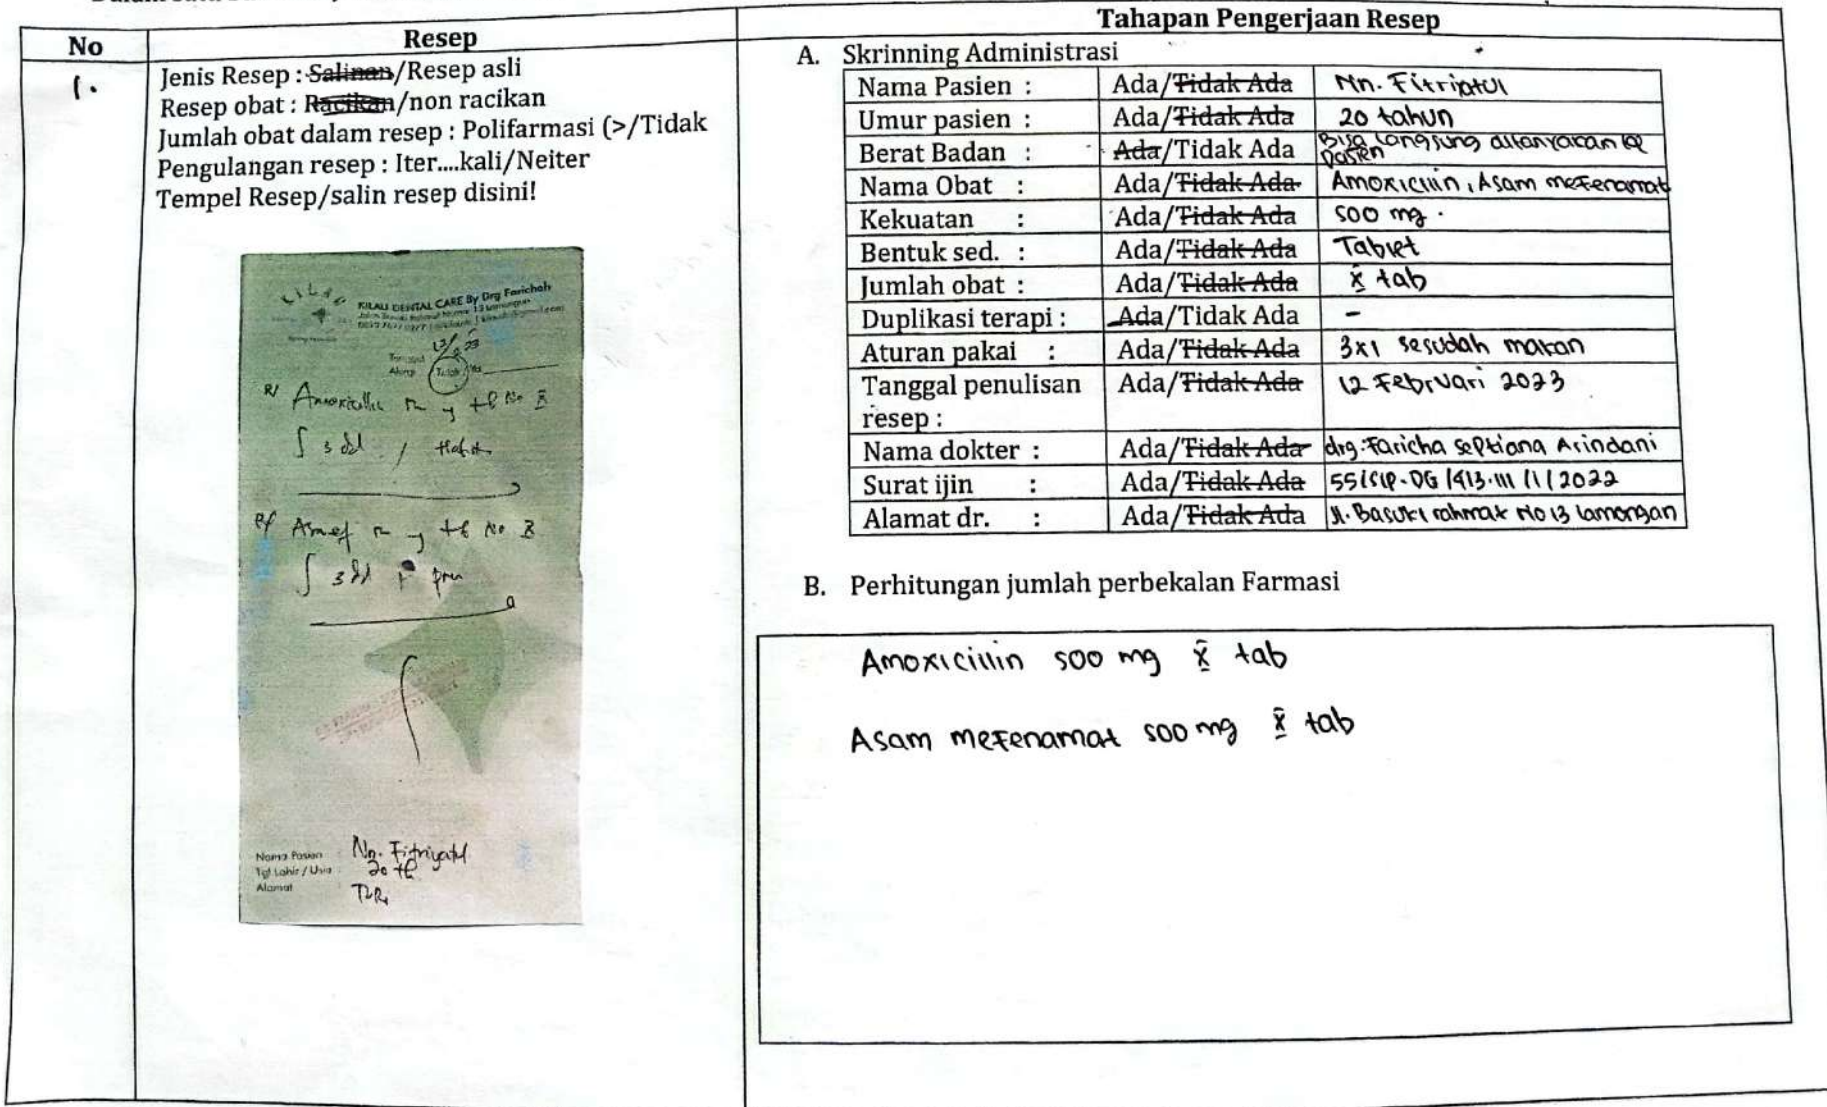 No
Resep
Tahapan Pengerjaan Resep
1.
Jenis Resep : Salinan/Resep asli
Resep obat : Racikan/non racikan
Jumlah obat dalam resep : Polifarmasi (>/Tidak
Pengulangan resep : Iter....kali/Neiter
Tempel Resep/salin resep disini!
KILAU
KILAU DENTAL CARE By Drg Farichah
Tanggal
Alergi Tidak / Ya
R/ Amoxicillin tb No X
∫ 3 dd 1
R/ Asmef tb No X
∫ 3 dd prn
Nama Pasien Nn. Fitriyatul
Tgl Lahir / Usia 20 th
Alamat
A. Skrinning Administrasi
Nama Pasien : Ada/Tidak Ada Nn. Fitriatul
Umur pasien : Ada/Tidak Ada 20 tahun
Berat Badan : Ada/Tidak Ada Bisa langsung ditanyakan ke pasien
Nama Obat : Ada/Tidak Ada Amoxicillin, Asam mefenamat
Kekuatan : Ada/Tidak Ada 500 mg.
Bentuk sed. : Ada/Tidak Ada Tablet
Jumlah obat : Ada/Tidak Ada X tab
Duplikasi terapi : Ada/Tidak Ada -
Aturan pakai : Ada/Tidak Ada 3x1 sesudah makan
Tanggal penulisan resep : Ada/Tidak Ada 12 Februari 2023
Nama dokter : Ada/Tidak Ada drg. Faricha Septiana Arindani
Surat ijin : Ada/Tidak Ada 55/SIP-DG/413.111/1/2022
Alamat dr. : Ada/Tidak Ada Jl. Basuki rahmat No 13 lamongan
B. Perhitungan jumlah perbekalan Farmasi
Amoxicillin 500 mg X tab
Asam mefenamat 500 mg X tab